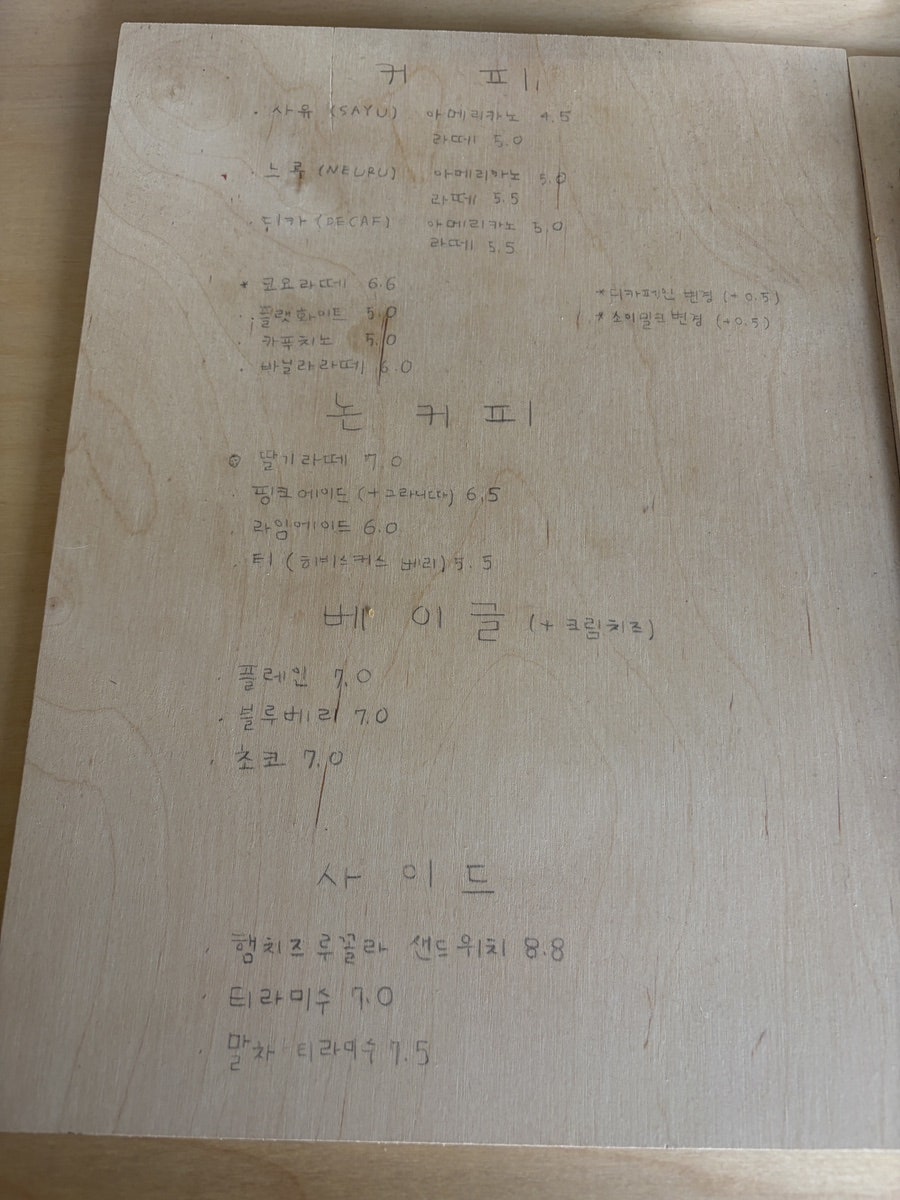 커 피
· 사유 (SAYU) 아메리카노 4.5
라떼 5.0
· 느루 (NEURU) 아메리카노 5.0
라떼 5.5
· 디카 (DECAF) 아메리카노 5.0
라떼 5.5
* 코요라떼 6.6
· 플랫화이트 5.0
· 카푹치노 5.0
· 바닐라라떼 6.0
* 디카페인 변경 (+0.5)
* 소이밀크변경 (+0.5)
논 커 피
딸기라떼 7.0
· 핑크에이드 (+그라니따) 6.5
· 라임에이드 6.0
· 티 (히비스커스 베리) 5.5
베 이 글 (+ 크림치즈)
· 플레인 7.0
· 블루베리 7.0
· 초코 7.0
사 이 드
· 햄치즈루꼴라 샌드위치 8.8
· 티라미수 7.0
· 말차 티라미수 7.5